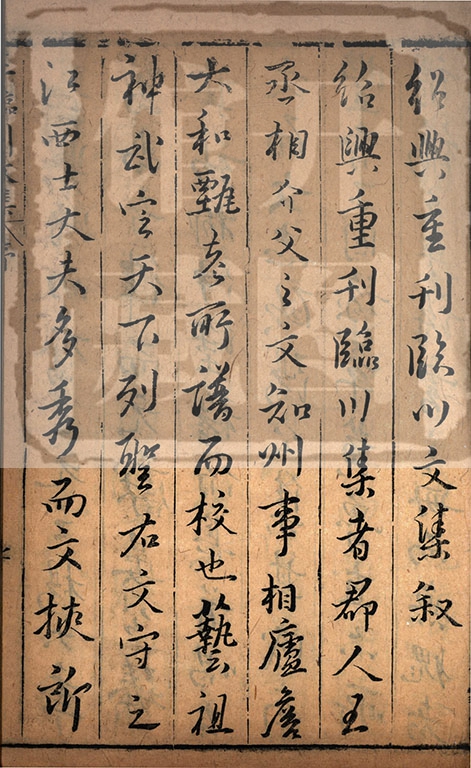 紹興重刊臨川文集叙
紹興重刊臨川集者郡人王
丞相介父之文知州事桐廬詹
大和甄老所譜而校也藝祖
神武定天下列聖右文守之
江西士大夫多秀而文挾所